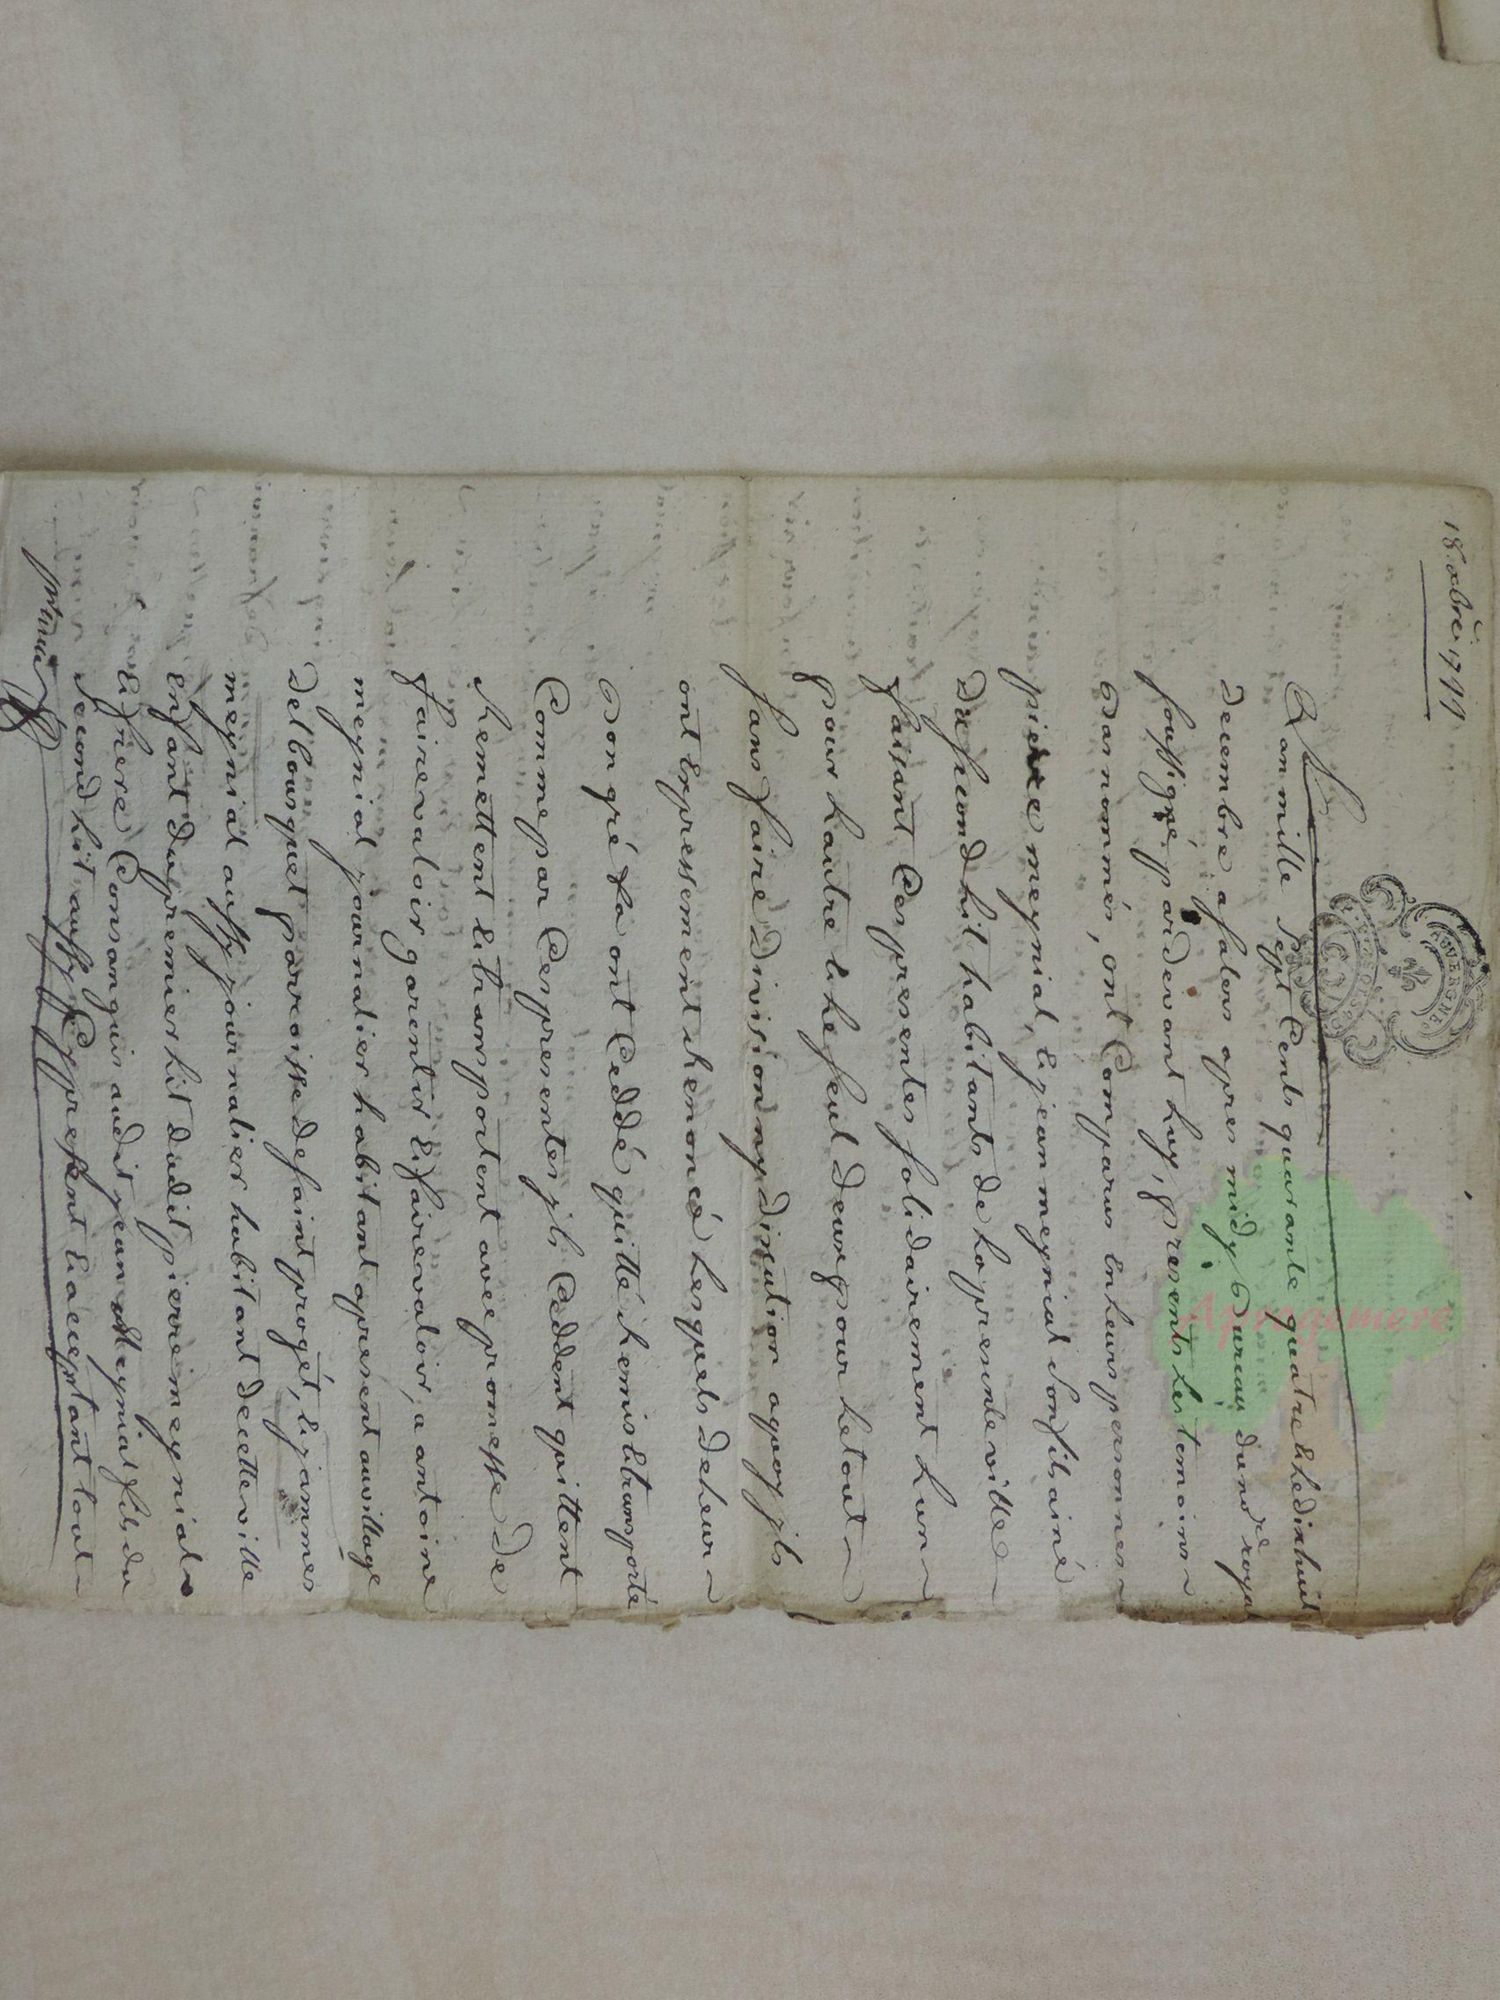 18. xbre. 1744
AUVERGNE.
Lan mille Sept Cents quarante quatre & le dixhuit
decembre a salers apres midy Bureau du nre royal
soussigné pardevant luy, presents les temoins
bas nommés, ont Comparus en leurs personnes
pierre meynial, & jean meynial son fils ainé
du second lit habitants de la presente ville
faisant Ces presentes solidairement lun
pour lautre & le seul deux pour le tout
sans faire division ny discution a quoy jls
ont expressement renoncé lesquels de leur
bon gré la ont Ceddé quitté remis & transporté
Comme par Ces presentes jls Ceddent quittent
remettent & transportent avec promesse de
faire valoir garentir & faire valoir, a antoine
meynial journalier habitant a present au village
del bourguet parroisse de saint proget, & jammes
meynial aussy journalier habitant de cette ville
enfant du premier lit dudit pierre meynial
& frere Consanguis audit jean Meynial fils du
second lit aussy Cy present & acceptant tout
Apregemere